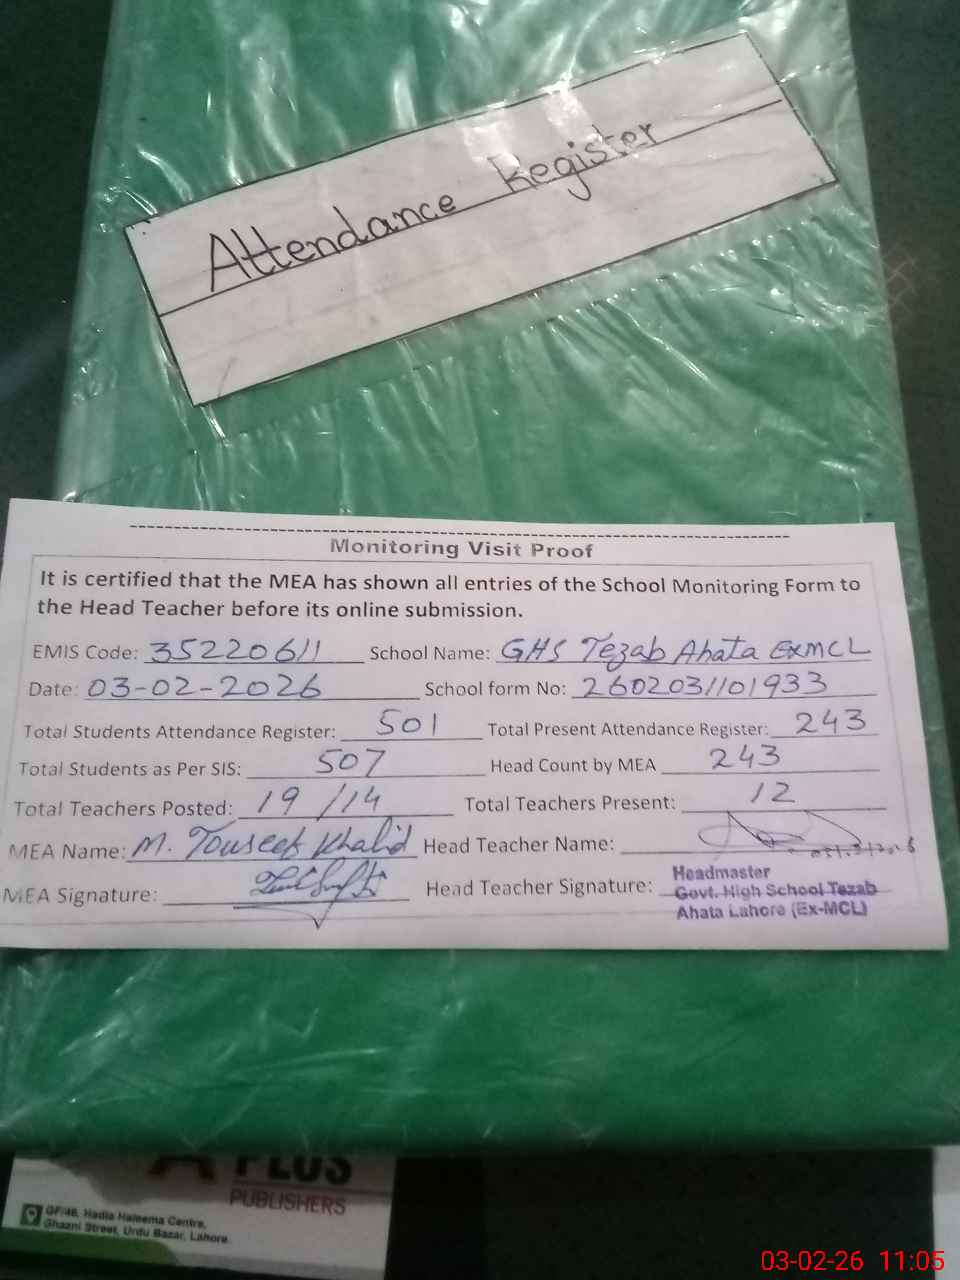 Attendance Register
Monitoring Visit Proof
It is certified that the MEA has shown all entries of the School Monitoring Form to
the Head Teacher before its online submission.
EMIS Code: 35220611 School Name: GHS Tezab Ahata ExMCL
Date: 03-02-2026 School form No: 2602031101933
Total Students Attendance Register: 501 Total Present Attendance Register: 243
Total Students as Per SIS: 507 Head Count by MEA 243
Total Teachers Posted: 19/14 Total Teachers Present: 12
MEA Name: M. Touseef Khalid Head Teacher Name:
MEA Signature: Head Teacher Signature:
Headmaster
Govt. High School Tezab
Ahata Lahore (Ex-MCL)
PLUS
PUBLISHERS
GF/46, Hadia Haleema Centre,
Ghazni Street, Urdu Bazar, Lahore.
03-02-26 11:05